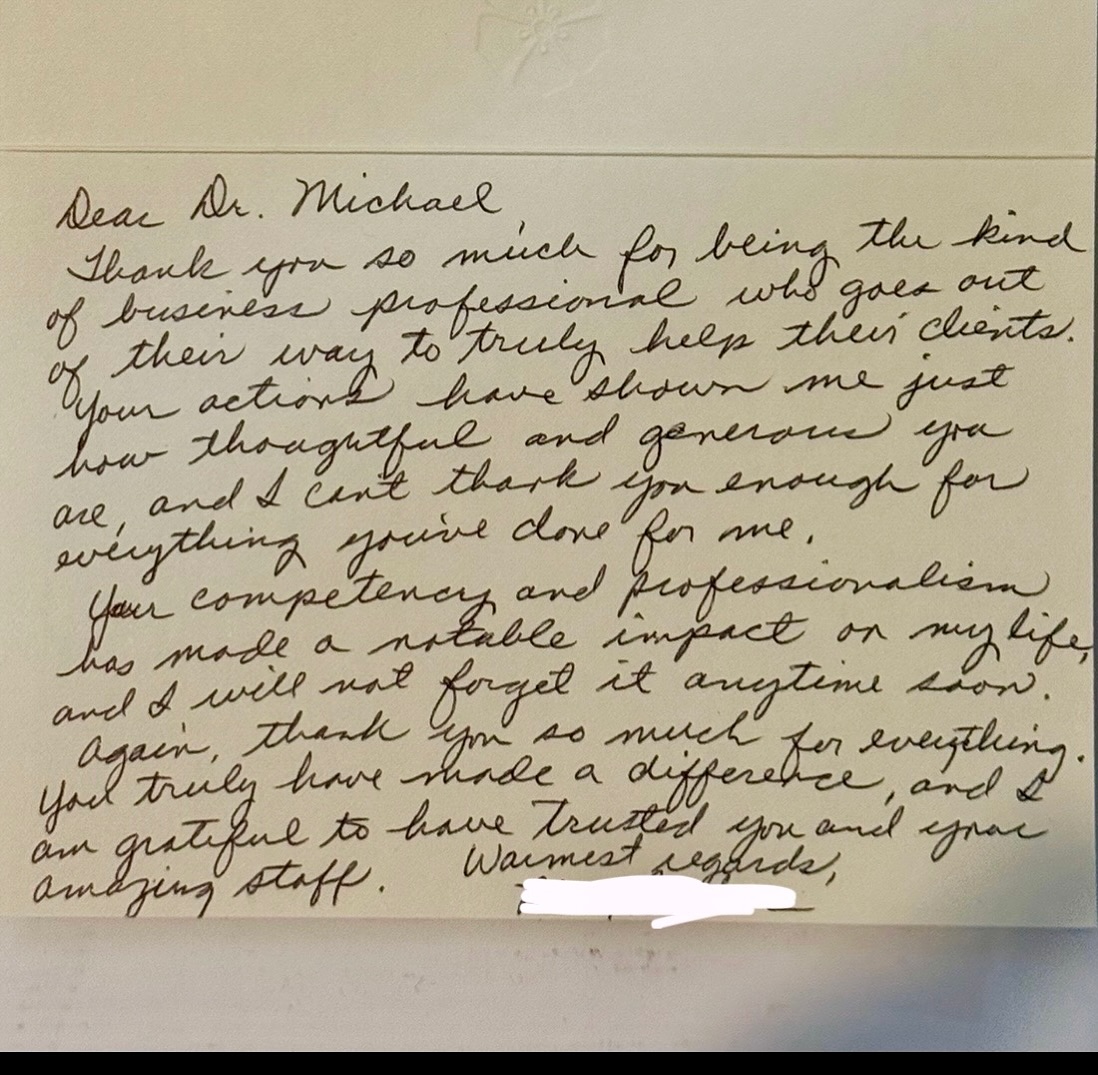 Dear Dr. Michael,
Thank you so much for being the kind
of business professional who goes out
of their way to truly help their clients.
Your actions have shown me just
how thoughtful and generous you
are, and I can't thank you enough for
everything you've done for me.
Your competency and professionalism
has made a notable impact on my life,
and I will not forget it anytime soon.
Again, thank you so much for everything.
You truly have made a difference, and I
am grateful to have trusted you and your
amazing staff. Warmest regards,